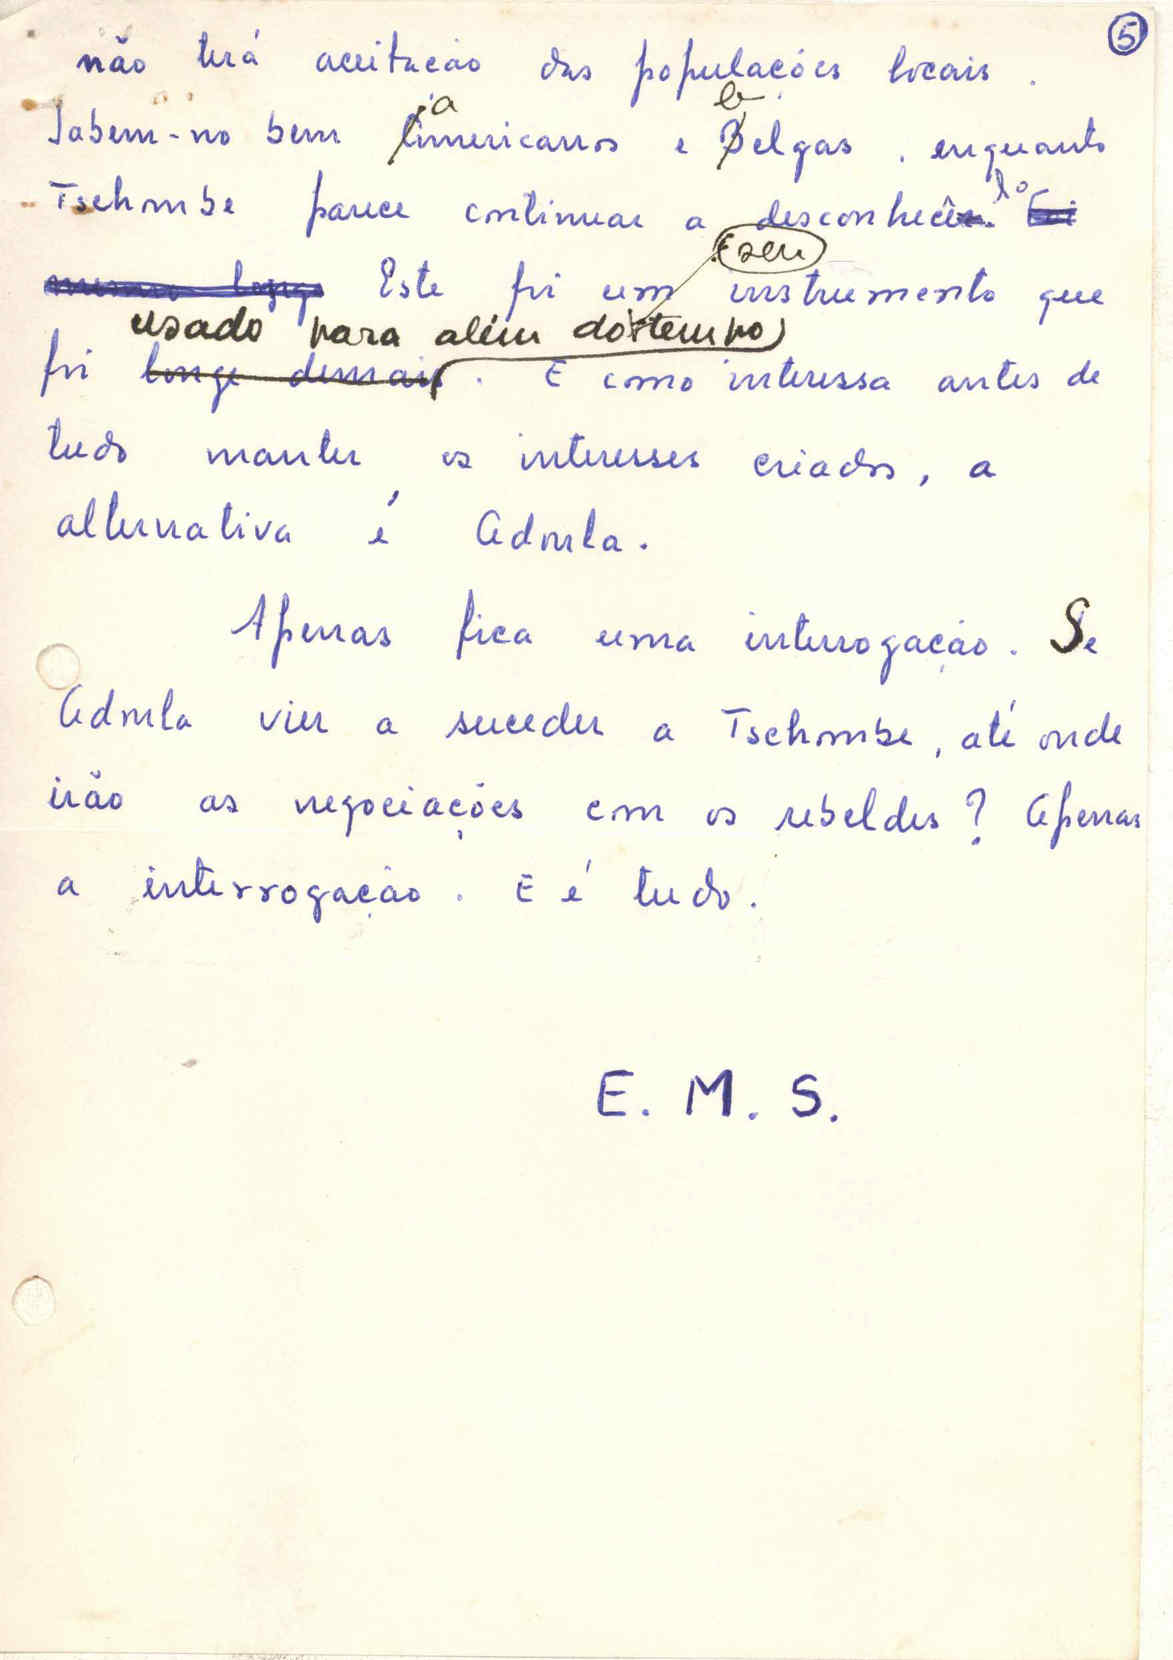 5
não terá aceitação das populações locais.
Sabem-no bem americanos e belgas, enquanto
Tschombe parece continuar a desconhecê-lo. Foi
mesmo longe Este foi um instrumento que
seu
usado para além do tempo
foi longe demais. E como interessa antes de
tudo manter os interesses criados, a
alternativa é Adoula.
Apenas fica uma interrogação. Se
Adoula vier a suceder a Tschombe, até onde
irão as negociações com os rebeldes? Apenas
a interrogação. E é tudo.
E. M. S.